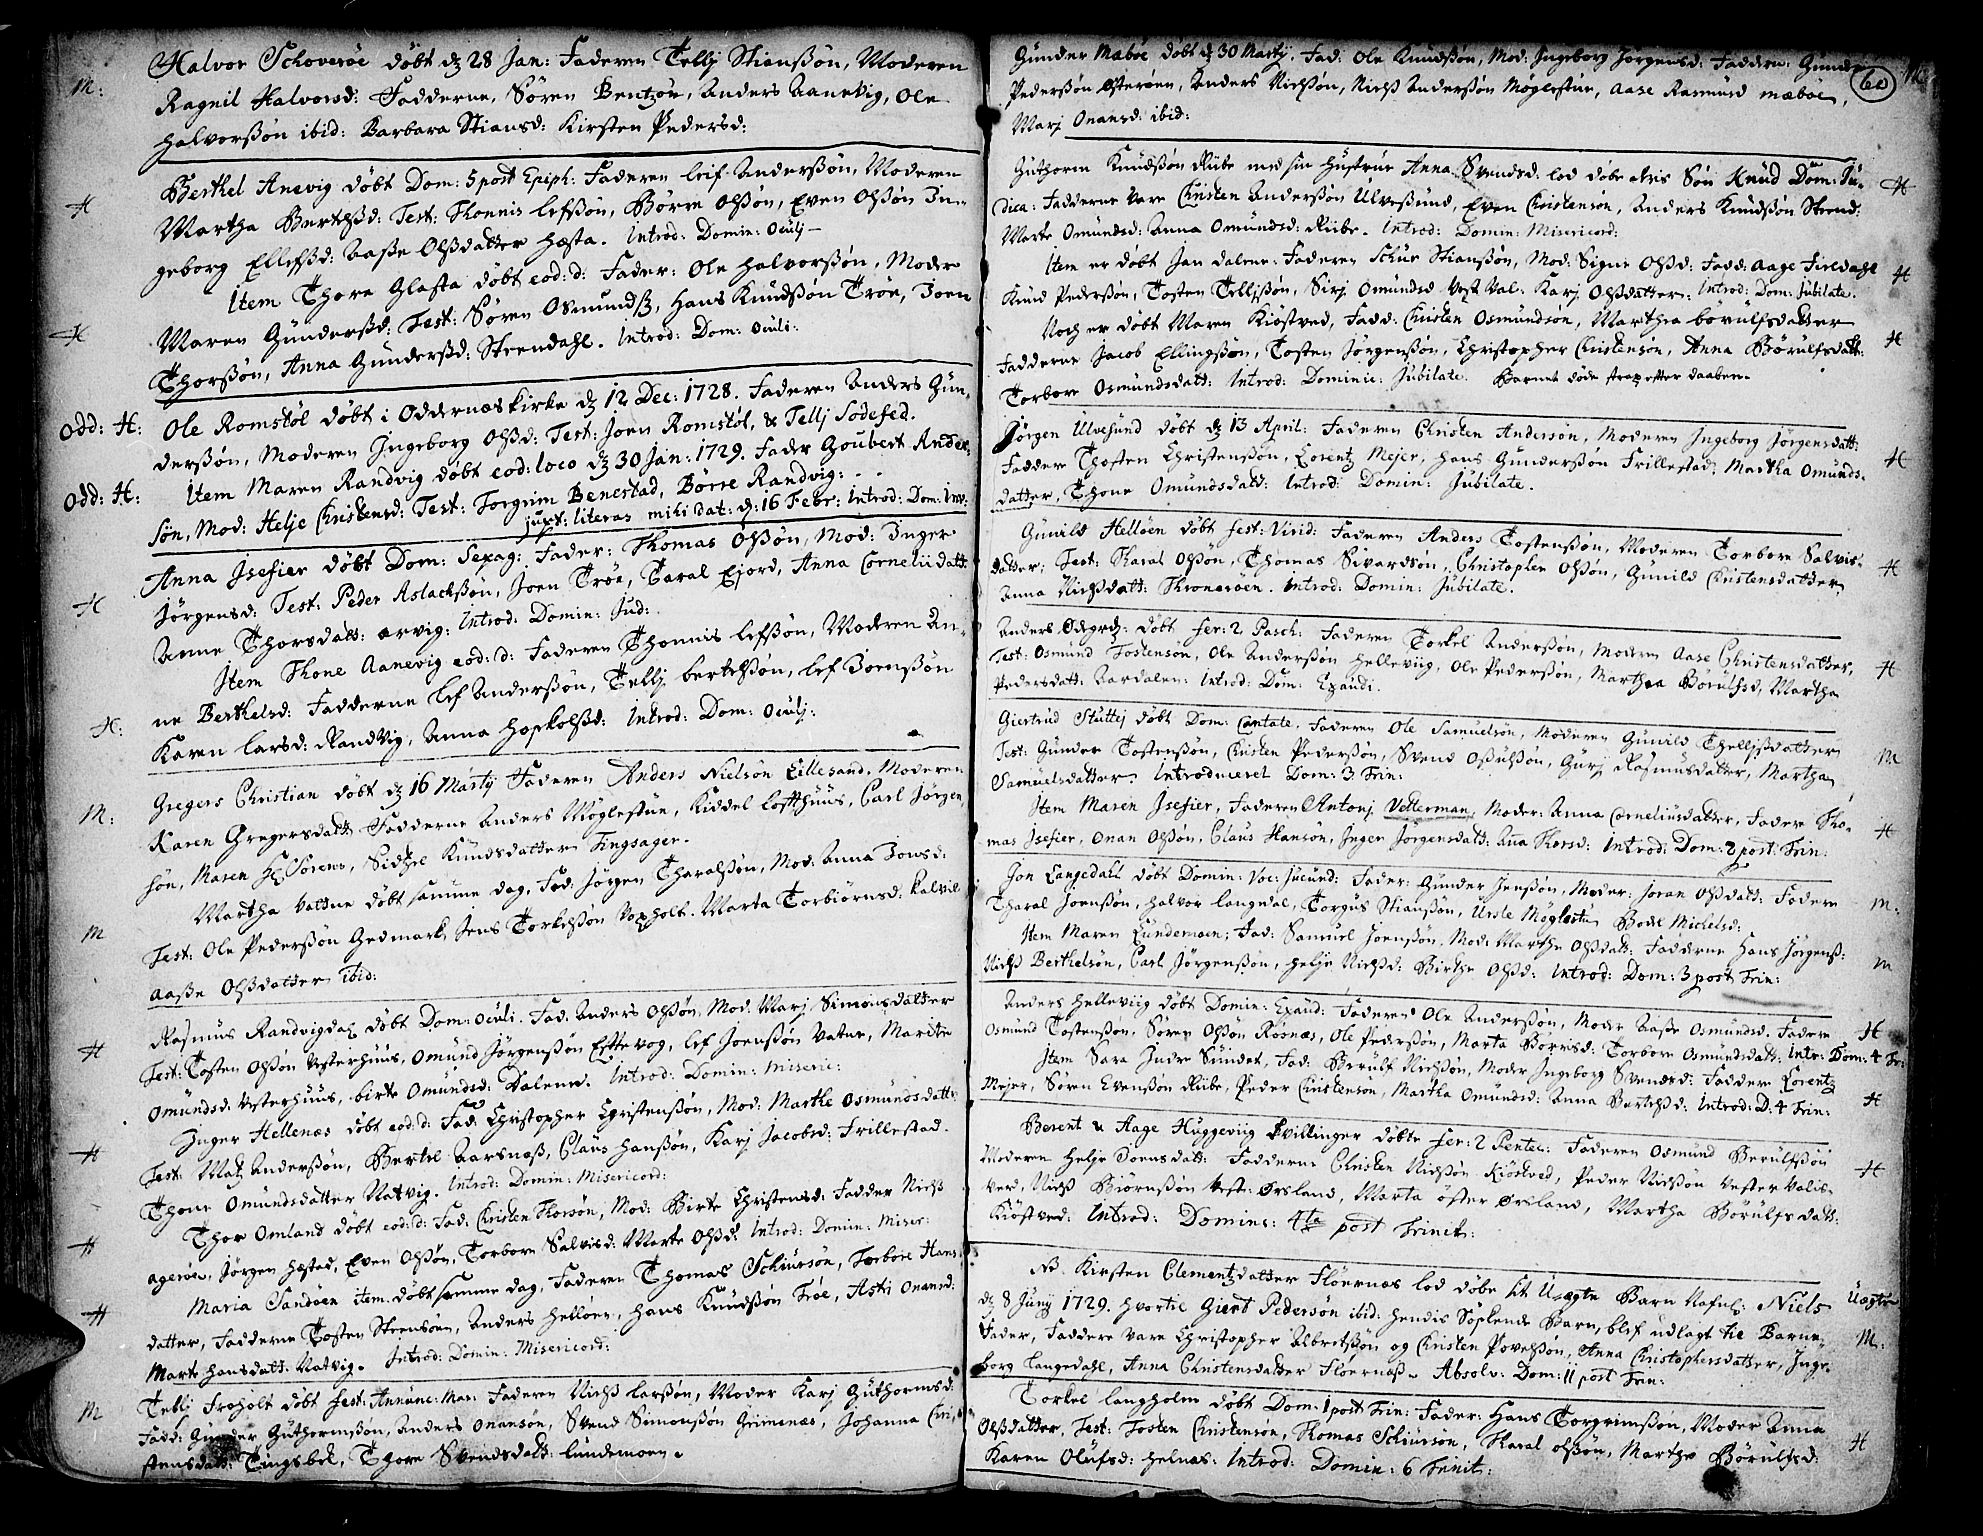 M: Halvor Schoverøe døbt dȝ 28 Jan: Faderen Tellj Stiansßøn, Moderen
Ragnil Halvorsd: Fadderne, Søren Bentzøn, Anders Aanevig, Ole
Halvorsßøn ibid: Barbara Stiansd: Kirsten Pedersd:
H Berthel Anevig døbt Dom: 5 post Epiph: Faderen leif Andersßøn, Moderen
Martha Berthsd: Test: Thonnis lefsßøn, Børre Olsßøn, Even Olsßøn In-
geborg Ellefsd: Aaße Olsdatter Hæsta. Introd: Domin: Oculj
H Item Thore Glasta døbt eod: d: Fader: Ole Halvorsßøn, Moder
Maren Gundersd: Test: Søren Osmundß, Hans Knudsßøn Trøe, Joen
Thorsßøn, Anna Gundersd: Steendahl. Introd: Dom: Oculi:
Odd: H: Ole Romstøl døbt i Oddernæs kirke dȝ 12 Dec: 1728. Faderen Anders Gun-
dersßøn, Moderen Ingeborg Olsd: Test: Joen Romstøl, & Tellj Sodefed.
Odd: H: Item Maren Randvig døbt eod: loco dȝ 30 Jan: 1729. Fader Goubert Ander-
søn, Mod: Helje Christensd: Test: Torgrim Benestad, Børre Randvig:
juxt: literas mihi dat: d: 16 Febr: Introd: Dom: Inv:
H Anna Isefier døbt Dom: Sexag: Fader: Thomas Olsßøn, Mod: Inger
Jørgensd: Test: Peder Aslachsßøn, Joen Trøe, Taral Ejord, Anna Corneliidatt:
Anne Thorsdatt: arvig: Introd: Domin: Jud:
H: Item Thone Aanevig eod: d: Faderen Thonnis lefsßøn, Moderen An-
ne Berthelsd: Fadderne lef Andersßøn, Tellj bertelsßøn, lef Joensßøn
Karen larsd: Randvig, Anna Hoskolsd: Introd: Dom: Oculj:
M: Gregers Christian døbt dȝ 16 Martij Faderen Anders Nielsøn Lillesand, Moderen
Karen Gregersdatt: Fadderne Anders Møglestue, Kiddel Loffthuus, Carl Jørgen-
søn, Maren Sørens, Sidsel Knudsdatter Tingsager.
M Martha Vattne døbt samme dag, Fad: Jørgen Tharalsßøn, Mod: Anna Jonsd:
Test: Ole Pedersßøn Gedmark, Jens Torkelsßøn Voxholt. Marta Torbiørnsd: Kalvil
Aaße Olsdatter ibid:
H Rasmus Randvigdal døbt Dom: Oculi. Fad: Anders Olsßøn, Mod: Marj Simonsdatter
Test: Tosten Olsßøn Vesterhuus, Omund Jørgensßøn Eftevog, lef Joensßøn Vatne, Marite
Omundsd: Vesterhuus, birte Omundsd: Dalene. Introd: Domin: Miseric:
H Inger Hellenæs døbt eod: d: Fad: Christopher Christensßøn, Mod: Marthe Osmundsdatt:
Test: Matz Andersßøn, Bertel Aarsnæß, Claus Hansßøn, Karj Jacobsd: Trillestad.
Thone Omundsdatter Natvig. Introd: Domin: Misericord:
H Thor Omland døbt eod: d: Fad: Christen Thorsøn, Mod: Birte Christensd: Fadder Nielß
Agerøe, Jørgen Hæstad, Even Olsßøn, Torbore Salvisd: Marte Olsd: Introd: Domin: Miser:
H Maria Sandøen item døbt samme dag, Faderen Thomas Schiursøn, Torbore Hans-
datter, Fadderne Tosten Steensøen, Anders Helløen, Hans Knudsßøn Trøe, Astri Onansd:
Marte Hansdatt: Natvig. Introd: Domin: Misericord:
M Tellj Froholt døbt fest: Annunc: Mar: Faderen Nielß larsßøn, Moder Karj Guthormsd:
Fadd: Gunder Guthormsßøn, Anders Onansøn, Svend Simonsßøn Grimenæs, Johanna Chri-
stensdatt: Tingsbek, Thore Svendsdatt: lundemoen.
60
Gunder Mæbøe døbt dȝ 30 Martij. Fad: Ole Knudsßøn, Mod: Ingeborg Jørgensd: Faddere: Gunde
Pedersßøn Osterøen, Anders Nielsßøn, Nielß Andersßøn Møglestue, Aase Rasmusd mæboe,
Marj Onansd: ibid:
Guthorm Knudsßøn Riibe med sin Hustrue Anna Svendsd: lod døbe deris Søn Knud Dom: Ju- H
dica: Fadderne vare Christen Andersßøn Ulvesund, Even Christensøn, Anders Knudsßøn Steend:
Marte Omundsd: Anna Omundsd: Riibe. Introd: Domin: Misericord:
Item er døbt Jan dalene. Faderen Schiur Stiansßøn, Mod: Signe Olsd: Fadd: Aage Fireldahl H
Knud Pedersßøn, Tosten Telljsßøn, Sirj Omundsd Vest Val. Karj Olsdatter: Introd: Dom: Jubilate.
Noch er døbt Maren Kiøstved, Fadd: Christen Osmundsøn, Marthea børulfsdatter H
Fadderne Jacob Ellingsßøn, Tosten Jørgensßøn, Christopher Christensøn, Anna Børulfsdatt:
Torbore Osmundsdatt: Introd: Dominic: Jubilate. Barnet døde strax efter daaben.
Jørgen Ulvesund døbt dȝ 13 April: Faderen Christen Andersøn, Moderen Ingeborg Jørgensdatt: H
Faddere Thosten Christensßøn, Lorentz Mejer, Hans Gundersßøn Trillestad; Martha Omunds-
datter, Thone Omundsdatt: Introd: Domin: Jubilate.
Gunild Helløen døbt fest: Virid: Faderen Anders Tostensßøn, Moderen Torbore Salvis- H
datter; Test: Tharal Olsßøn, Thomas Sivardsøn, Christopher Olsßøn, Gunild Christensdatter
Anna Nielsdatt: Thronerøen. Introd: Domin: Jubilate.
Anders Ødegrdȝ: døbt fer: 2 Pasch: Faderen Torkel Andersßøn, Moderen Aase Christensdatter, H
Test: Osmund Tostensøn, Ole Andersßøn Helleviig, Ole Pedersßøn, Marthea Børulfsd, Martha
Pedersdatt: Aardalen: Introd: Dom: Exaudi.
Giertrud Stuttej døbt Dom: Cantate. Faderen Ole Samuelsøn, Moderen Gunild Thelljsdatter M
Test: Gunder Tostensßøn, Christen Pedersßøn, Svend Osulsßøn, Gurj Rasmusdatter, Martha
Samuelsdatter. Introduceret Dom: 3 Trin:
Item Maren Isefier, Faderen Antonj Vetterman, Moder: Anna Corneliusdatter, Faddere Tho- H
mas Isefier, Onan Olsßøn, Claus Hansøn, Inger Jørgensdatt: Ana Thorsd: Introd: Dom: 2 post: Trin:
Jon Langedahl døbt Domin: Voc: Jucund: Fader: Gunder Jensßøn, Moder: Joran Olsdatt: Faddere M:
Tharal Joensßøn, Halvor langedal, Torgus Stiansßøn, Ursle Møglestu Bodel Michelsd:
Item Maren Lundemoen; Fad: Samuel Joensßøn, Mod: Marthe Olsdatt: Fadderne Hans Jørgensß: M
Nielß Berthelsøn, Carl Jørgensßøn, Helje Nielsd: Birthe Olsd: Introd: Dom: 3 post Trin:
Anders Helleviig døbt Domin: Exaud: Faderen Ole Andersßøn, Moder Aaße Osmundsd. Faddere H
Osmund Tostensßøn, Søren Olsßøn Roonæs, Ole Pedersßøn, Marta Børrisd: Torbore Osmundsdatt: Intr: Dom: 4 Tri:
Item Sara Indre Sundet, Fad: Børulf Nielsßøn, Moder Ingeborg Svendsd: Faddere Lorentz
Mejer, Søren Evensßøn Riibe, Peder Christensøn, Martha Omundsd: Anna Bertelsd: Introd: D: 4 Trin: H
Berent & Aage Huggeviig Tvillinger døbte fer: 2 Pentec: Faderen Osmund Børulfsßøn
Moderen Helje Joensdatt: Fadderne Christen Nielsßøn Kiöstved, Peder Nielsßøn Vester Valis- H
verd, Nielß Biørnsßøn Vest: Ørsland, Marta öster Ørsland, Martha Børulfsdatt:
Kiöstved: Introd: Domine: 4ta post Trinit:
NB. Kirsten Clementzdatter Fløernæs lod døbe sit Uægte Barn Nafnl: Niels Uægte
dȝ 8 Junij 1729. Hvortil Giert Pedersøn ibid: hendis Søskende Barn, blef udlagt til Barne- M:
Fader, Faddere vare Christopher Albretsßøn og Christen Povelsßøn, Anna Christophersdatter, Inge-
borg Langedahl, Anna Christensdatter Fløernæß. Absolv: Dom: 11 post Trin:
Torkel langholm døbt Dom: 1 post Trin: Fader: Hans Torgrimsßøn, Moder Anna
Olsdatter, Test: Tosten Christensøn, Thomas Schiursøn, Tharal olsßøn, Marthe Børulfsd: H
Karen Olufsd: Helnæs: Introd: Domin: 6 Trinit: